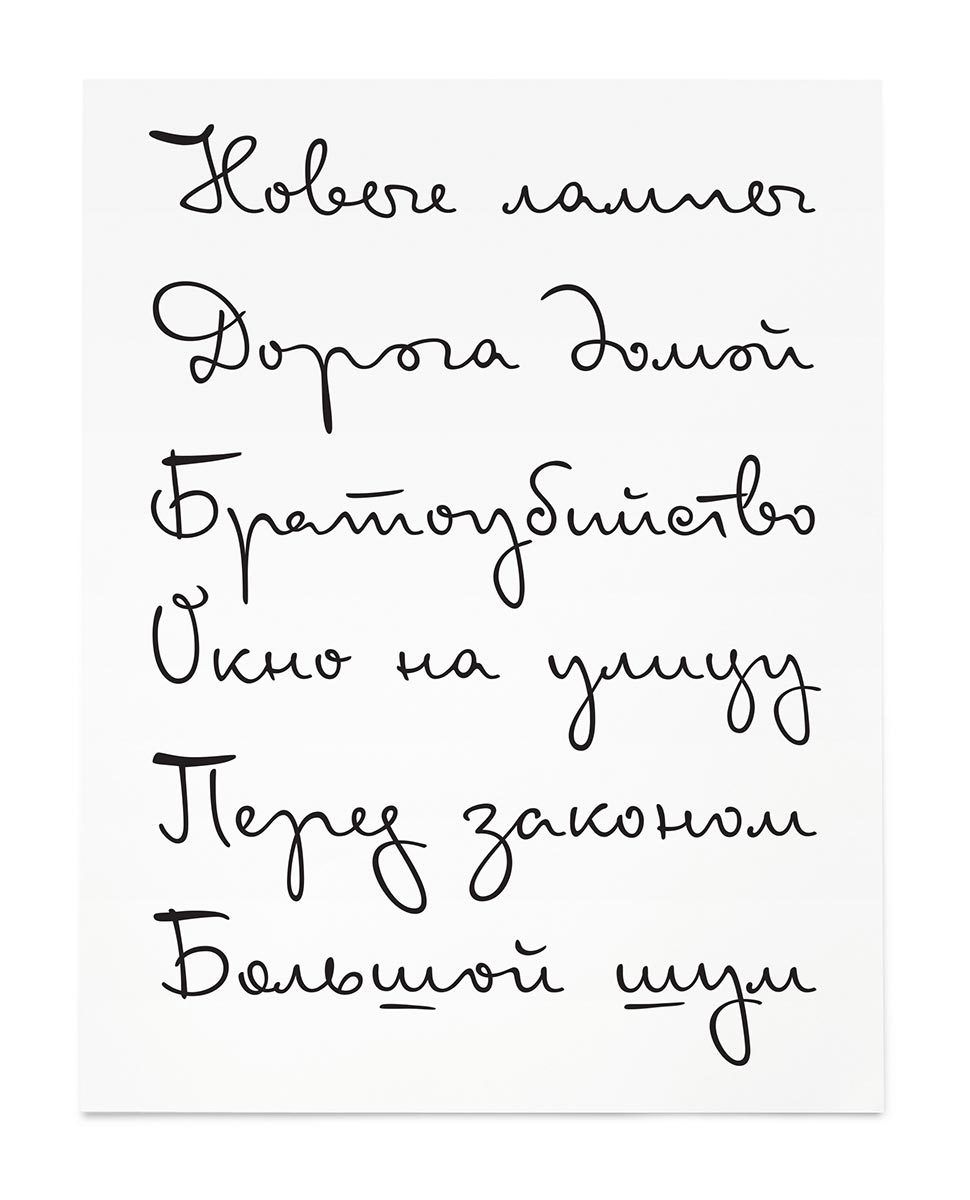 Новые лампы
Дорога домой
Братоубийство
Окно на улицу
Перед законом
Большой шум